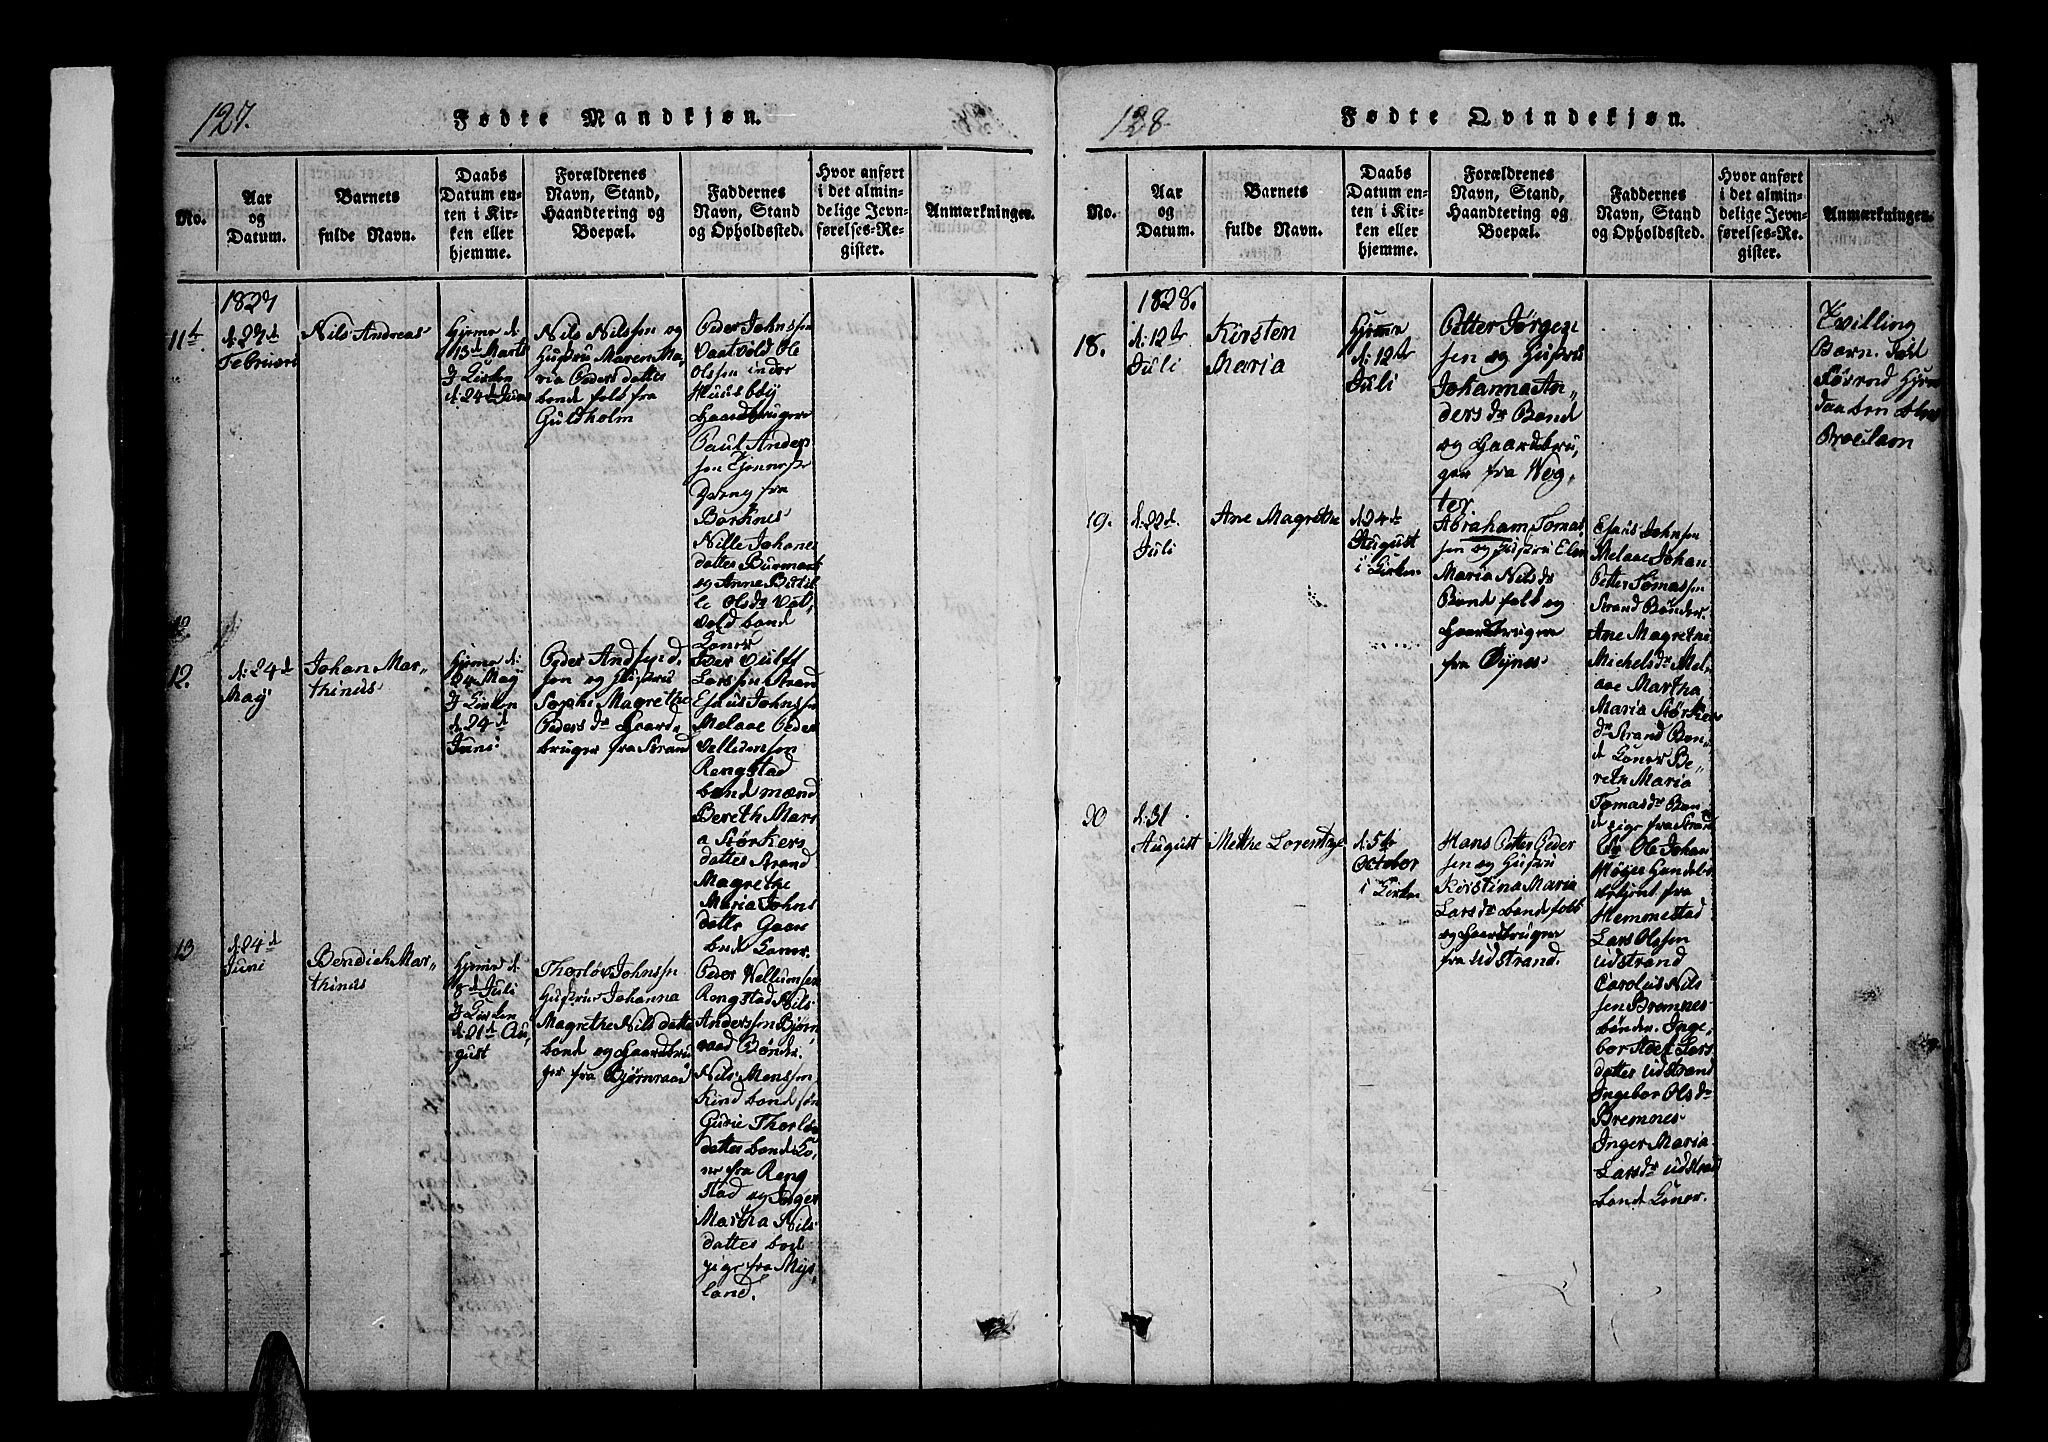 127.
Fødte Mandkjøn.
No.
Aar
og
Datum.
Barnets
fulde Navn.
Daabs
Datum en-
ten i Kir-
ken eller
hjemme.
Forældrenes
Navn, Stand,
Haandtering og
Boepæl.
Faddernes
Navn, Stand
og Opholdssted.
Hvor anført
i det almin-
delige Jevn-
førelses-Re-
gister.
Anmærkninger.
1827
11t.
d: 27d
Februari
Nils Andreas
Hjeme d
13d Marts
J Kirken
d. 24d Juni
Nils Nilssen og
Hustru Maren Ma,
ria Peders datter
bonde folk fra
Guldholm
Peder Johnssen
Vaatvold Ole
Olssen indre
Huusbÿ
Gaardbrugere
Paul Ander
sen Tjennest
Dreng fra
Borknes
Nille Johanes
datter Burmark
og Anne Birtil
le Olsdr Vat,
vold bonde
Koner
12.
12.
d: 24d
Maÿ
Johan Mar-
thinus
Hjeme d:
24 Maÿ
J Kirken
d. 24d
Juni
Peder Andfind.
sen og Hustru
Sophi Magrethe
Peders dr Gaard,
bruger fra Strand
Larssen Strand
Esaus Johnssen
Melaae Peder
Vellumsen
Rengstad
bonde mænd
Bereth Mari
a Størkers
datter Strand
Magrethe
Maria Johns
datter Gaan
bnde Koner.
13
d: 24d
Juni
Bendich Mar-
thinus
Hjeme d
8d Juli
J Kirken
d. 21d Au,
gust
Thorlov Johnssen
Hustru Johanna
Magrethe Nils datter
bonde og Gaardbru
ger fra Bjørnraae
Peder Vellumsen
Rengstad Nils
Anderssen Bjørn
raad Bønder.
Nils Monssen
Kind bonde søn
Gurie Thorlov
datter bonde Ko,
ne fra Reng
stad og Inger
Martha Nils
datter bonde
pige fra Mÿr
land.
128.
Fødte Qvindekjøn.
No.
Aar
og
Datum.
Barnets
fulde Navn.
Daabs
Datum en-
ten i Kir-
ken eller
hjemme.
Forældrenes
Navn, Stand,
Haandtering og
Boepæl.
Faddernes
Navn, Stand
og Opholdssted.
Hvor anført
i det almin-
delige Jevn-
førelses-Re-
gister.
Anmærkninger.
1828.
18.
d: 12te
Juli
Kirsten
Maria
Hjeme
d: 12te
Juli
Petter Jørgen
sen og Hustru
Johanna An-
ders dr Bonde
og Gaardbru,
ger fra Veg-
ter.
Tvilling
Barn. Død
Førend Hjem
daaben blev
Proclam
19.
d: 22d.
Juli
Ane Magrethe
d 24de
August
i Kirken
Abraham Tomas
sen og Hustru Elen
Maria Nilsdr
Bonde folk og
Gaardbruger
fra Øÿnes
Esaus Johnsen
Melaae Johan
Petter Tomassen
Strand Bønder.
Ane Magrethe
Michelsdr Mel,
aae Martha
Maria Størkers
dr Strand Bon-
de Koner Be-
reth Maria
Tomasdr Bon
de pige fra Strand
20
d: 31
August
Methe Lorentze
d 5te
October
i Kirken
Hans Petter Peder
sen og Hustru
Kirstina Maria
Larsdr bonde folk
og Gaardbruger
fra Udstrand.
Ole Johan
Høÿer Handels
betjent fra
Hemmestad
Lars Olssen
Udstrand
Carolus Nils
sen Bremnes
bønder. Inge,
bor Lars
datter Udstrand
Ingebor Olsdr
Bremnes
Inger Maria
Larsdr Udstrand
bonde Koner.